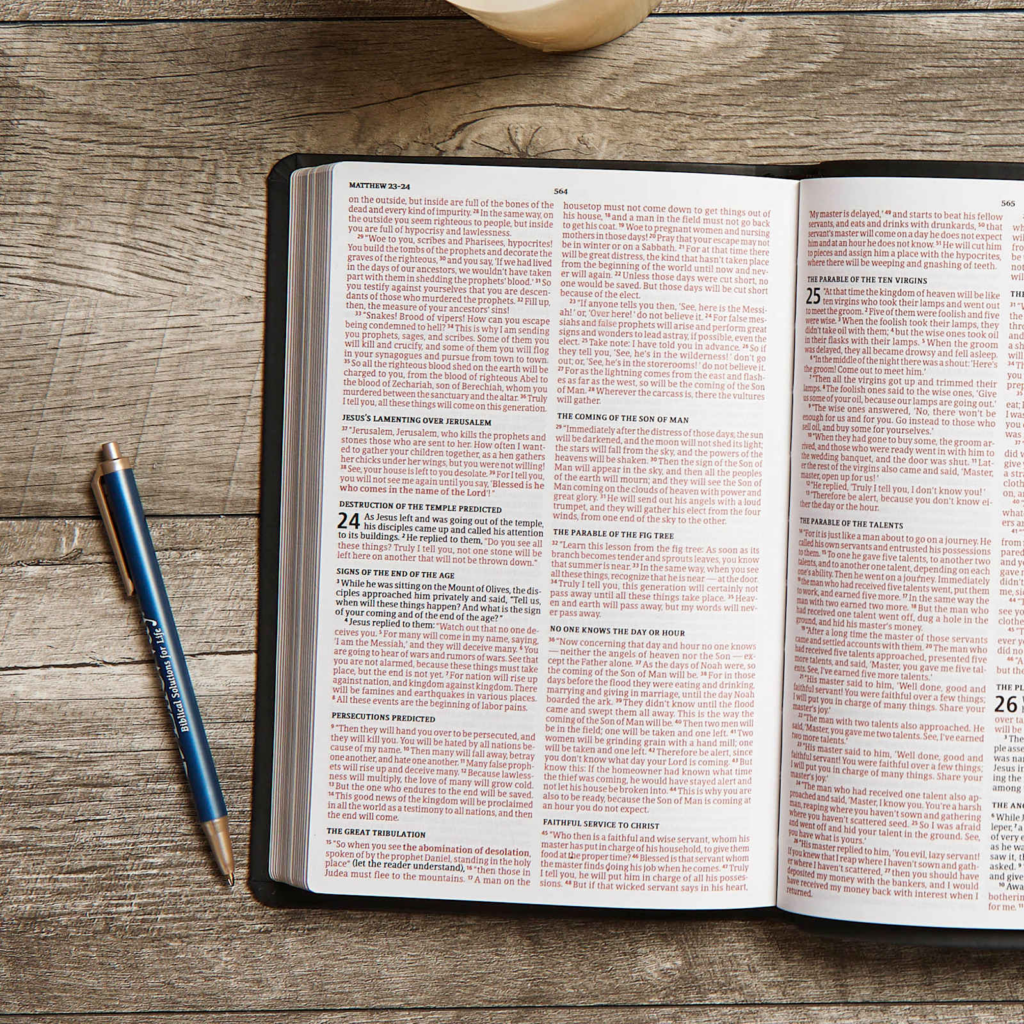 MATTHEW 23–24
564
on the outside, but inside are full of the bones of the
dead and every kind of impurity. 28 In the same way, on
the outside you seem righteous to people, but inside
you are full of hypocrisy and lawlessness.
29 "Woe to you, scribes and Pharisees, hypocrites!
You build the tombs of the prophets and decorate the
graves of the righteous, 30 and you say, 'If we had lived
in the days of our ancestors, we wouldn't have taken
part with them in shedding the prophets' blood.' 31 So
you testify against yourselves that you are descen-
dants of those who murdered the prophets. 32 Fill up,
then, the measure of your ancestors' sins!
33 "Snakes! Brood of vipers! How can you escape
being condemned to hell? 34 This is why I am sending
you prophets, sages, and scribes. Some of them you
will kill and crucify, and some of them you will flog
in your synagogues and pursue from town to town.
35 So all the righteous blood shed on the earth will be
charged to you, from the blood of righteous Abel to
the blood of Zechariah, son of Berechiah, whom you
murdered between the sanctuary and the altar. 36 Truly
I tell you, all these things will come on this generation.
JESUS'S LAMENTING OVER JERUSALEM
37 "Jerusalem, Jerusalem, who kills the prophets and
stones those who are sent to her. How often I want-
ed to gather your children together, as a hen gathers
her chicks under her wings, but you were not willing!
38 See, your house is left to you desolate. 39 For I tell you,
you will not see me again until you say, 'Blessed is he
who comes in the name of the Lord'!"
DESTRUCTION OF THE TEMPLE PREDICTED
24 As Jesus left and was going out of the temple,
his disciples came up and called his attention
to its buildings. 2 He replied to them, "Do you see all
these things? Truly I tell you, not one stone will be
left here on another that will not be thrown down."
SIGNS OF THE END OF THE AGE
3 While he was sitting on the Mount of Olives, the dis-
ciples approached him privately and said, "Tell us,
when will these things happen? And what is the sign
of your coming and of the end of the age?"
4 Jesus replied to them: "Watch out that no one de-
ceives you. 5 For many will come in my name, saying,
'I am the Messiah,' and they will deceive many. 6 You
are going to hear of wars and rumors of wars. See that
you are not alarmed, because these things must take
place, but the end is not yet. 7 For nation will rise up
against nation, and kingdom against kingdom. There
will be famines and earthquakes in various places.
8 All these events are the beginning of labor pains.
PERSECUTIONS PREDICTED
9 "Then they will hand you over to be persecuted, and
they will kill you. You will be hated by all nations be-
cause of my name. 10 Then many will fall away, betray
one another, and hate one another. 11 Many false proph-
ets will rise up and deceive many. 12 Because lawless-
ness will multiply, the love of many will grow cold.
13 But the one who endures to the end will be saved.
14 This good news of the kingdom will be proclaimed
in all the world as a testimony to all nations, and then
the end will come.
THE GREAT TRIBULATION
15 "So when you see the abomination of desolation,
spoken of by the prophet Daniel, standing in the holy
place" (let the reader understand), 16 "then those in
Judea must flee to the mountains. 17 A man on the
housetop must not come down to get things out of
his house, 18 and a man in the field must not go back
to get his coat. 19 Woe to pregnant women and nursing
mothers in those days! 20 Pray that your escape may not
be in winter or on a Sabbath. 21 For at that time there
will be great distress, the kind that hasn't taken place
from the beginning of the world until now and nev-
er will again. 22 Unless those days were cut short, no
one would be saved. But those days will be cut short
because of the elect.
23 "If anyone tells you then, 'See, here is the Messi-
ah!' or, 'Over here!' do not believe it. 24 For false mes-
siahs and false prophets will arise and perform great
signs and wonders to lead astray, if possible, even the
elect. 25 Take note: I have told you in advance. 26 So if
they tell you, 'See, he's in the wilderness!' don't go
out; or, 'See, he's in the storerooms!' do not believe it.
27 For as the lightning comes from the east and flash-
es as far as the west, so will be the coming of the Son
of Man. 28 Wherever the carcass is, there the vultures
will gather.
THE COMING OF THE SON OF MAN
29 "Immediately after the distress of those days, the sun
will be darkened, and the moon will not shed its light;
the stars will fall from the sky, and the powers of the
heavens will be shaken. 30 Then the sign of the Son of
Man will appear in the sky, and then all the peoples
of the earth will mourn; and they will see the Son of
Man coming on the clouds of heaven with power and
great glory. 31 He will send out his angels with a loud
trumpet, and they will gather his elect from the four
winds, from one end of the sky to the other.
THE PARABLE OF THE FIG TREE
32 "Learn this lesson from the fig tree: As soon as its
branch becomes tender and sprouts leaves, you know
that summer is near. 33 In the same way, when you see
all these things, recognize that he is near — at the door.
34 Truly I tell you, this generation will certainly not
pass away until all these things take place. 35 Heav-
en and earth will pass away, but my words will nev-
er pass away.
NO ONE KNOWS THE DAY OR HOUR
36 "Now concerning that day and hour no one knows
— neither the angels of heaven nor the Son — ex-
cept the Father alone. 37 As the days of Noah were, so
the coming of the Son of Man will be. 38 For in those
days before the flood they were eating and drinking,
marrying and giving in marriage, until the day Noah
boarded the ark. 39 They didn't know until the flood
came and swept them all away. This is the way the
coming of the Son of Man will be. 40 Then two men will
be in the field; one will be taken and one left. 41 Two
women will be grinding grain with a hand mill; one
will be taken and one left. 42 Therefore be alert, since
you don't know what day your Lord is coming. 43 But
know this: If the homeowner had known what time
the thief was coming, he would have stayed alert and
not let his house be broken into. 44 This is why you are
also to be ready, because the Son of Man is coming at
an hour you do not expect.
FAITHFUL SERVICE TO CHRIST
45 "Who then is a faithful and wise servant, whom his
master has put in charge of his household, to give them
food at the proper time? 46 Blessed is that servant whom
the master finds doing his job when he comes. 47 Truly
I tell you, he will put him in charge of all his posses-
sions. 48 But if that wicked servant says in his heart,
565
'My master is delayed,' 49 and starts to beat his fellow
servants, and eats and drinks with drunkards, 50 that
servant's master will come on a day he does not expect
him and at an hour he does not know. 51 He will cut him
to pieces and assign him a place with the hypocrites,
where there will be weeping and gnashing of teeth.
THE PARABLE OF THE TEN VIRGINS
25 "At that time the kingdom of heaven will be like
ten virgins who took their lamps and went out
to meet the groom. 2 Five of them were foolish and five
were wise. 3 When the foolish took their lamps, they
didn't take oil with them; 4 but the wise ones took oil
in their flasks with their lamps. 5 When the groom
was delayed, they all became drowsy and fell asleep.
6 "In the middle of the night there was a shout: 'Here's
the groom! Come out to meet him.'
7 "Then all the virgins got up and trimmed their
lamps. 8 The foolish ones said to the wise ones, 'Give
us some of your oil, because our lamps are going out.'
9 "The wise ones answered, 'No, there won't be
enough for us and for you. Go instead to those who
sell oil, and buy some for yourselves.'
10 "When they had gone to buy some, the groom ar-
rived, and those who were ready went in with him to
the wedding banquet, and the door was shut. 11 Lat-
er the rest of the virgins also came and said, 'Master,
master, open up for us!'
12 "He replied, 'Truly I tell you, I don't know you!'
13 "Therefore be alert, because you don't know ei-
ther the day or the hour.
THE PARABLE OF THE TALENTS
14 "For it is just like a man about to go on a journey. He
called his own servants and entrusted his possessions
to them. 15 To one he gave five talents, to another two
talents, and to another one talent, depending on each
one's ability. Then he went on a journey. Immediately
16 the man who had received five talents went, put them
to work, and earned five more. 17 In the same way the
man with two earned two more. 18 But the man who
had received one talent went off, dug a hole in the
ground, and hid his master's money.
19 "After a long time the master of those servants
came and settled accounts with them. 20 The man who
had received five talents approached, presented five
more talents, and said, 'Master, you gave me five tal-
ents. See, I've earned five more talents.'
21 "His master said to him, 'Well done, good and
faithful servant! You were faithful over a few things;
I will put you in charge of many things. Share your
master's joy.'
22 "The man with two talents also approached. He
said, 'Master, you gave me two talents. See, I've earned
two more talents.'
23 "His master said to him, 'Well done, good and
faithful servant! You were faithful over a few things;
I will put you in charge of many things. Share your
master's joy.'
24 "The man who had received one talent also ap-
proached and said, 'Master, I know you. You're a harsh
man, reaping where you haven't sown and gathering
where you haven't scattered seed. 25 So I was afraid
and went off and hid your talent in the ground. See,
you have what is yours.'
26 "His master replied to him, 'You evil, lazy servant!
If you knew that I reap where I haven't sown and gath-
er where I haven't scattered, 27 then you should have
deposited my money with the bankers, and I would
have received my money back with interest when I
returned.
26
Biblical Solutions for Life